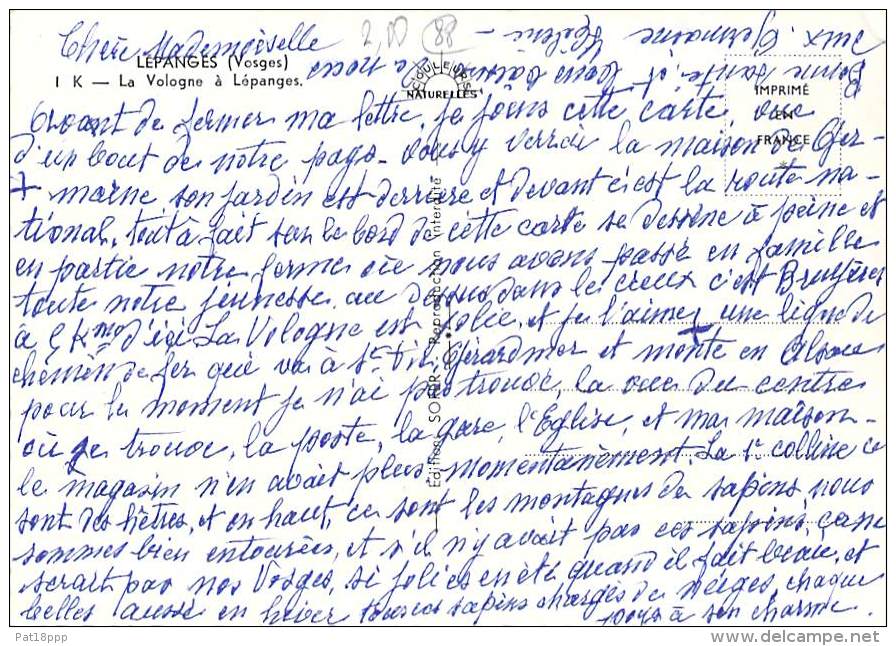 Chère Mademoiselle
2,00
88
LÉPANGES (Vosges)
I K — La Vologne à Lépanges.
COULEURS
NATURELLES
IMPRIMÉ
EN
FRANCE
Avant de fermer ma lettre, je joins cette carte, vue
d'un bout de notre pays - vous y verrai la maison de Ger-
+ maine, son jardin est derrière et devant c'est la route na-
tional, tout à fait sur le bord de cette carte se dessine à peine et
en partie notre ferme où nous avons passé en famille
toute notre jeunesse, au dessus dans le creux c'est Bruyères
à 9 Kmo d'ici. La Vologne est jolie, et je l'aime, une ligne de
chemin de fer qui va à St Dié, Gérardmer et monte en Alsace
pour le moment je n'ai pas trouvé, la vue du centre
où je trouve, la poste, la gare, l'Eglise, et ma maison -
le magasin n'en avait plus momentanément. La 1e colline ce
sont des hêtres, et en haut, ce sont les montagnes de sapins, nous
sommes bien entourées, et s'il n'y avait pas ces sapins, ça ne
serait pas nos Vosges, si jolies en été quand il fait beau, et
belles aussi en hiver tous ces sapins chargés de neiges, chaque
pays a son charme.
Bonne santé, et bons baisers de nous
deux. Germaine - Hélène -
Editions SOFER - Reproduction interdite
Pat18ppp
©delcampe.net